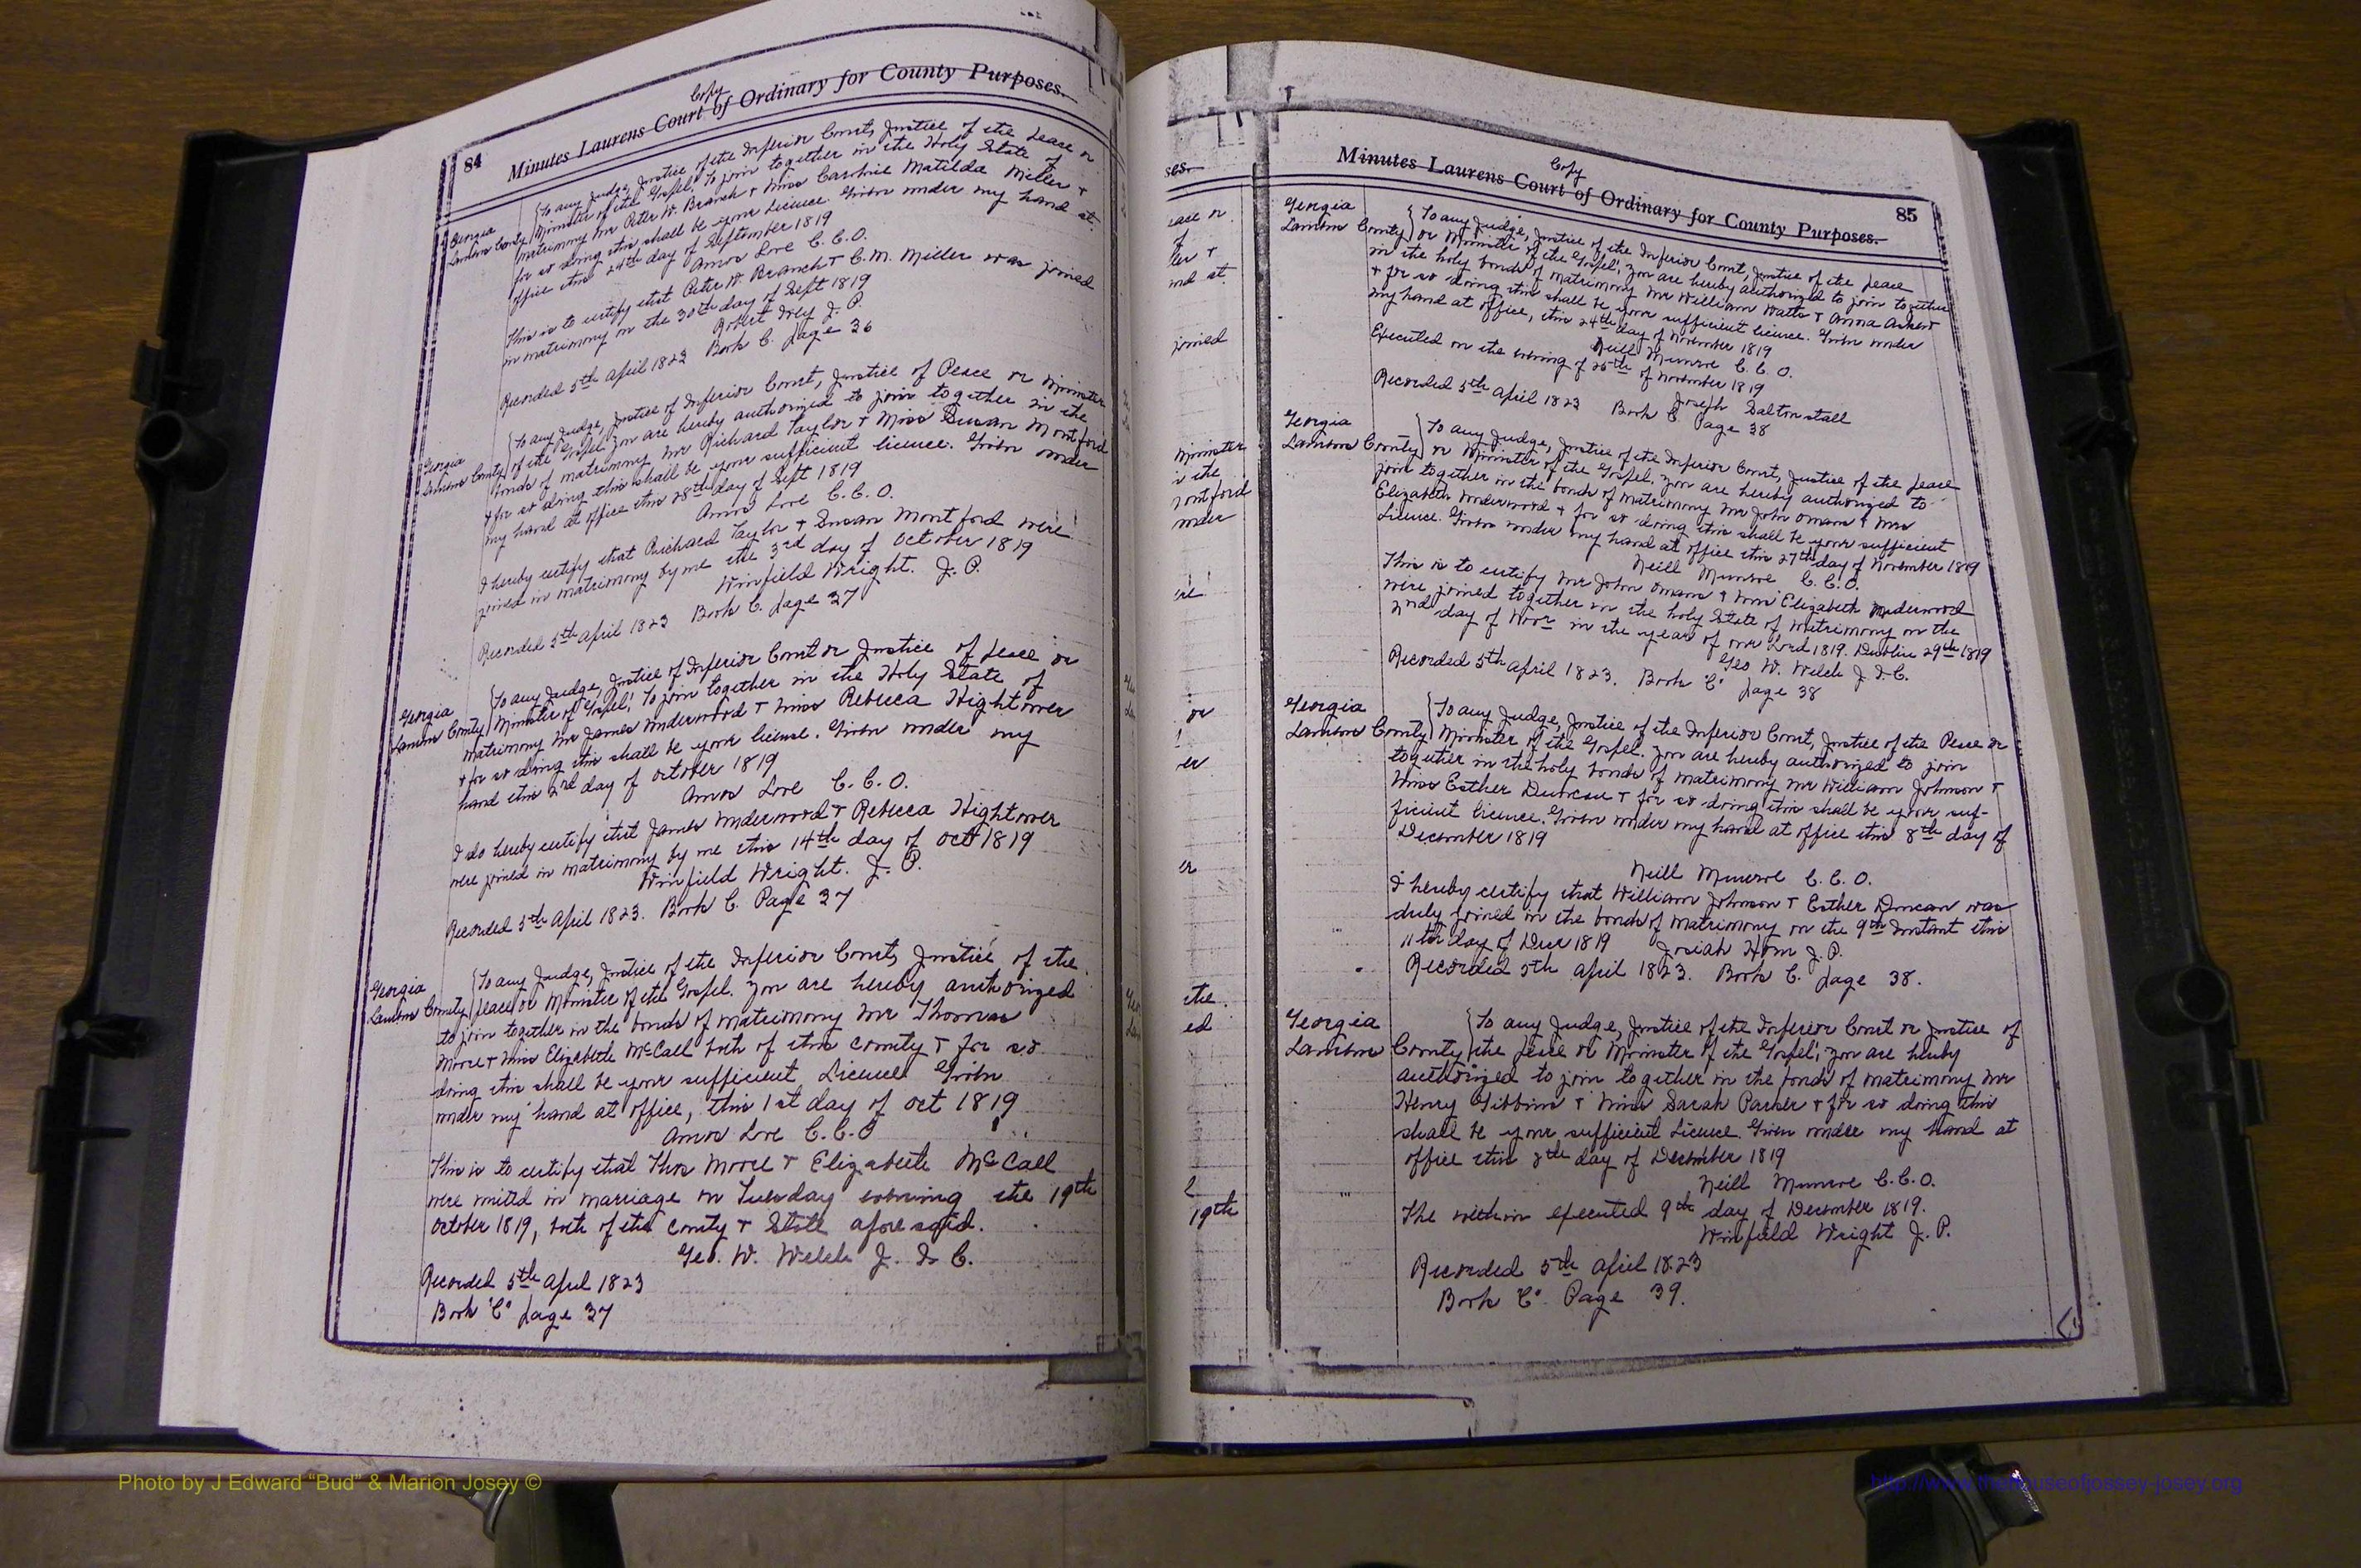 Copy
84 Minutes Laurens Court of Ordinary for County Purposes.
Georgia
Laurens County
To any Judge, Justice of the Inferior Court, Justice of the Peace or
Minister of the Gospel, To join together in the Holy State of
matrimony Mr Peter W. Branch & Miss Carolnie Matilda Miller &
for so doing this shall be your Licence. Given under my hand at
office this 24th day of September 1819
Amos Love C.C.O.
This is to certify that Peter W. Branch & C.M. Miller was joined
in matrimony on the 30th day of Sept 1819
Robert Irey J.P.
Recorded 5th April 1823 Book C. Page 36
Georgia
Laurens County
To any Judge, Justice of Inferior Court, Justice of Peace or Minister
of the Gospel you are hereby authorized to join together in the
bonds of matrimony Mr Richard Taylor & Miss Susan Montford
& for so doing this shall be your sufficient licence. Given under
my hand at office this 28th day of Sept 1819
Amos Love C.C.O.
I hereby certify that Richard Taylor & Susan Montford were
joined in matrimony by me the 3rd day of October 1819
Winfield Wright. J.P.
Recorded 5th April 1823 Book C. Page 37
Georgia
Laurens County
To any Judge, Justice of Inferior Court or Justice of peace or
Minister of Gospel, To join together in the Holy State of
matrimony Mr James Underwood & Miss Rebecca Hightower
& for so doing this shall be your license. Given under my
hand this 2nd day of October 1819
Amos Love C.C.O.
I do hereby certify that James Underwood & Rebecca Hightower
were joined in matrimony by me this 14th day of Oct 1819
Winfield Wright. J.P.
Recorded 5th April 1823. Book C. Page 37
Georgia
Laurens County
To any Judge, Justice of the Inferior Court, Justice of the
peace or Minister of the Gospel. you are hereby authorized
to join together in the bonds of matrimony Mr Thomas
Moore & Miss Elizabeth McCall both of this county & for so
doing this shall be your sufficient Licence Given
under my hand at office, this 1st day of Oct 1819
Amos Love C.C.O
This is to certify that Thos Moore & Elizabeth McCall
were united in marriage on Tuesday evening the 19th
October 1819, both of the County & State aforesaid.
Geo. W. Welch J.I.C.
Recorded 5th April 1823
Book "C" Page 37
ses.
eace or
of
ler &
and at
joined
Minister
n the
ontford
under
ere
or
er
er
the
ed
19th
Copy
Minutes Laurens Court of Ordinary for County Purposes. 85
Georgia
Laurens County
To any Judge, Justice of the Inferior Court, Justice of the peace
or Minister of the Gospel, you are hereby authorized to join together
in the holy bonds of matrimony Mr William Watts & Anna Askew
& for so doing this shall be your sufficient licence. Given under
my hand at office, this 24th day of November 1819
Neill Munroe C.C.O.
Executed on the evening of 25th of November 1819
Joseph Saltonstall
Recorded 5th April 1823 Book C. Page 38
Georgia
Laurens County
To any Judge, Justice of the Inferior Court, Justice of the peace
or Minister of the Gospel. you are hereby authorized to
join together in the bonds of matrimony Mr John Omans & Mrs
Elizabeth Underwood & for so doing this shall be your sufficient
Licence. Given under my hand at office this 27th day of November 1819
Neill Munroe C.C.O.
This is to certify Mr John Omans & Mrs Elizabeth Underwood
were joined together in the holy State of matrimony on the
2nd day of Novr in the year of our Lord 1819. Dublin 29th 1819
Geo W. Welch J.I.C.
Recorded 5th April 1823. Book "C" Page 38
Georgia
Laurens County
To any Judge, Justice of the Inferior Court, Justice of the Peace or
Minister of the Gospel. you are hereby authorized to join
together in the holy bonds of matrimony Mr William Johnson &
Miss Esther Duncan & for so doing this shall be your suf-
ficient licence. Given under my hand at office this 8th day of
December 1819
Neill Munroe C.C.O.
I hereby certify that William Johnson & Esther Duncan was
duly joined in the bonds of matrimony on the 9th Instant this
11th day of Decr 1819 Josiah Horn J.P.
Recorded 5th April 1823. Book C. Page 38.
Georgia
Laurens County
To any Judge, Justice of the Inferior Court or Justice of
the peace or Minister of the Gospel, you are hereby
authorized to join together in the bonds of matrimony Mr
Henry Gibbins & Miss Sarah Parker & for so doing this
shall be your sufficient Licence. Given under my hand at
office this 8th day of December 1819
Neill Munroe C.C.O.
The within executed 9th day of December 1819.
Winfield Wright J.P.
Recorded 5th April 1823
Book "C". Page 39.
Photo by J Edward “Bud” & Marion Josey ©
http://www.thehouseofjossey-josey.org